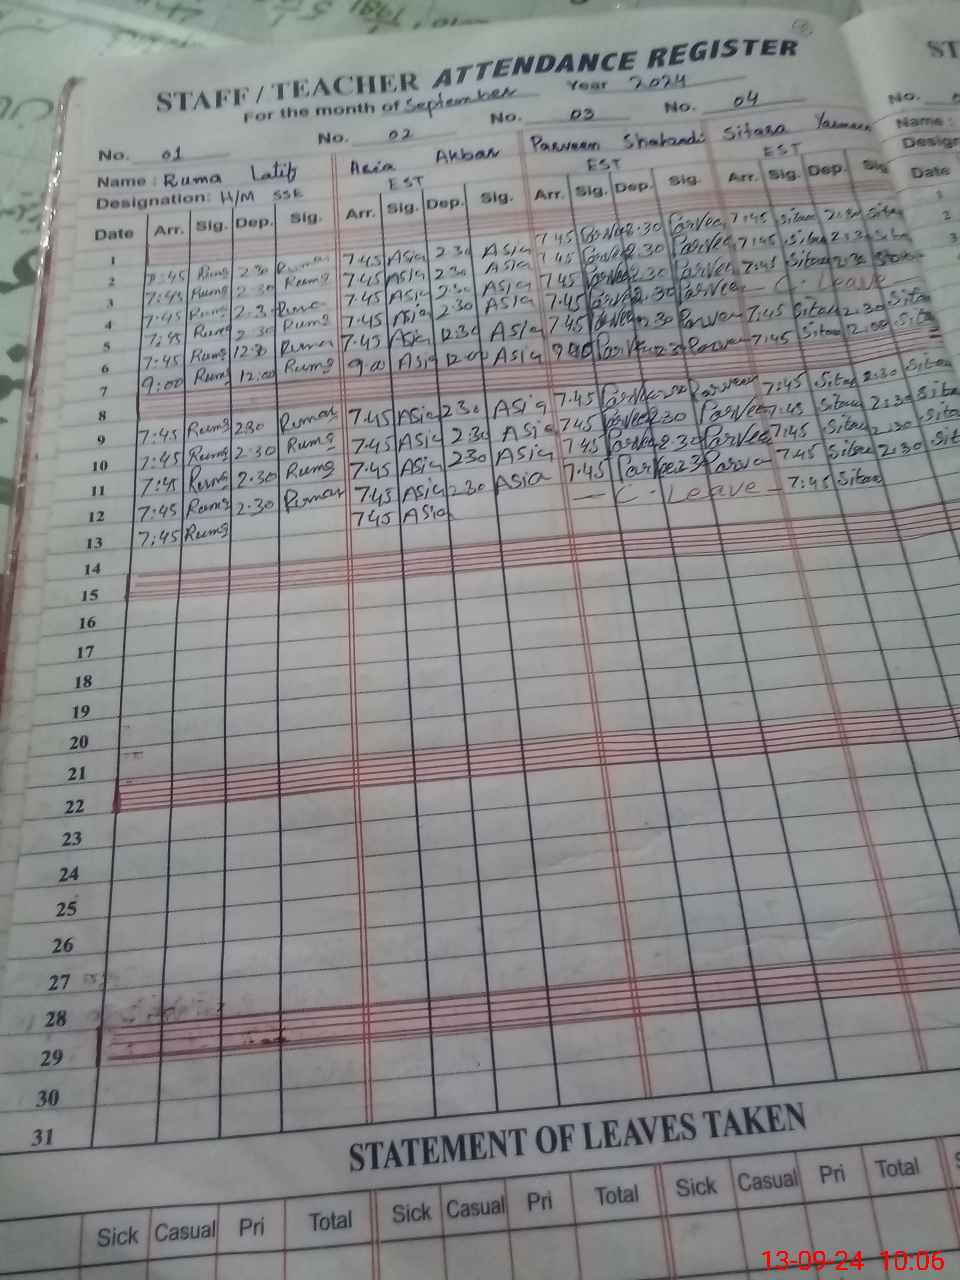 STAFF / TEACHER ATTENDANCE REGISTER
For the month of September Year 2024
No. 01 No. 02 No. 03 No. 04 No.
Name : Ruma Latif Asia Akbar Parveen Shabandi Sitara Yasmeen Name :
Designation: H/M SSE EST EST EST
Date Arr. Sig. Dep. Sig. Arr. Sig. Dep. Sig. Arr. Sig. Dep. Sig. Arr. Sig. Dep. Sig Date
1
2 7:45 Ruma 2 30 Ruma 7 45 Asia 2 30 Asia 7 45 Parvee 2.30 Parvee 7:45 Sitaa 2:30 Sita
3 7:45 Ruma 2 30 Ruma 7 45 Asia 2 30 Asia 7 45 Parvee 2.30 Parvee 7:45 Sitaa 2:30 Sita
4 7:45 Ruma 2.30 Ruma 7 45 Asia 2 30 Asia 7 45 Parvee 2.30 Parvee 7:45 Sitaa 2:30
5 7:45 Ruma 2 30 Ruma 7.45 Asia 2 30 Asia 7.45 Parvee 2.30 Parvee — C. Leave —
6 7:45 Ruma 12:30 Ruma 7.45 Asia 12 30 Asia 7 45 2 30 Parvee 7:45 Sitaa 2.30 Sita
7 9:00 Ruma 12:00 Ruma 9.00 Asia 12.00 Asia 9 00 Parvee 2 3 Parvee 7:45 Sitaa 2.00 Sita
8
9 7:45 Ruma 2 30 Ruma 7.45 Asia 2 30 Asia 7.45 Parvee Parveen 7:45 Sitaa 2:30 Sitaa
10 7:45 Ruma 2 30 Ruma 7.45 Asia 2 30 Asia 7 45 Parvee 2 30 Parvee 7:45 Sitaa 2 30 Sita
11 7:45 Ruma 2.30 Ruma 7.45 Asia 2 30 Asia 7 45 Parvee 2.30 Parvee 7:45 Sitaa 2 30 Sita
12 7:45 Ruma 2.30 Ruma 7 45 Asia 2 30 Asia 7.45 Parvee 2 3 Parvee 7:45 Sitaa 2:30 Sit
13 7:45 Ruma 7 45 Asia — C. Leave — 7:45 Sitaa
14
15
16
17
18
19
20
21
22
23
24
25
26
27
28
29
30
31
STATEMENT OF LEAVES TAKEN
Sick Casual Pri Total Sick Casual Pri Total Sick Casual Pri Total
13-09-24 10:06